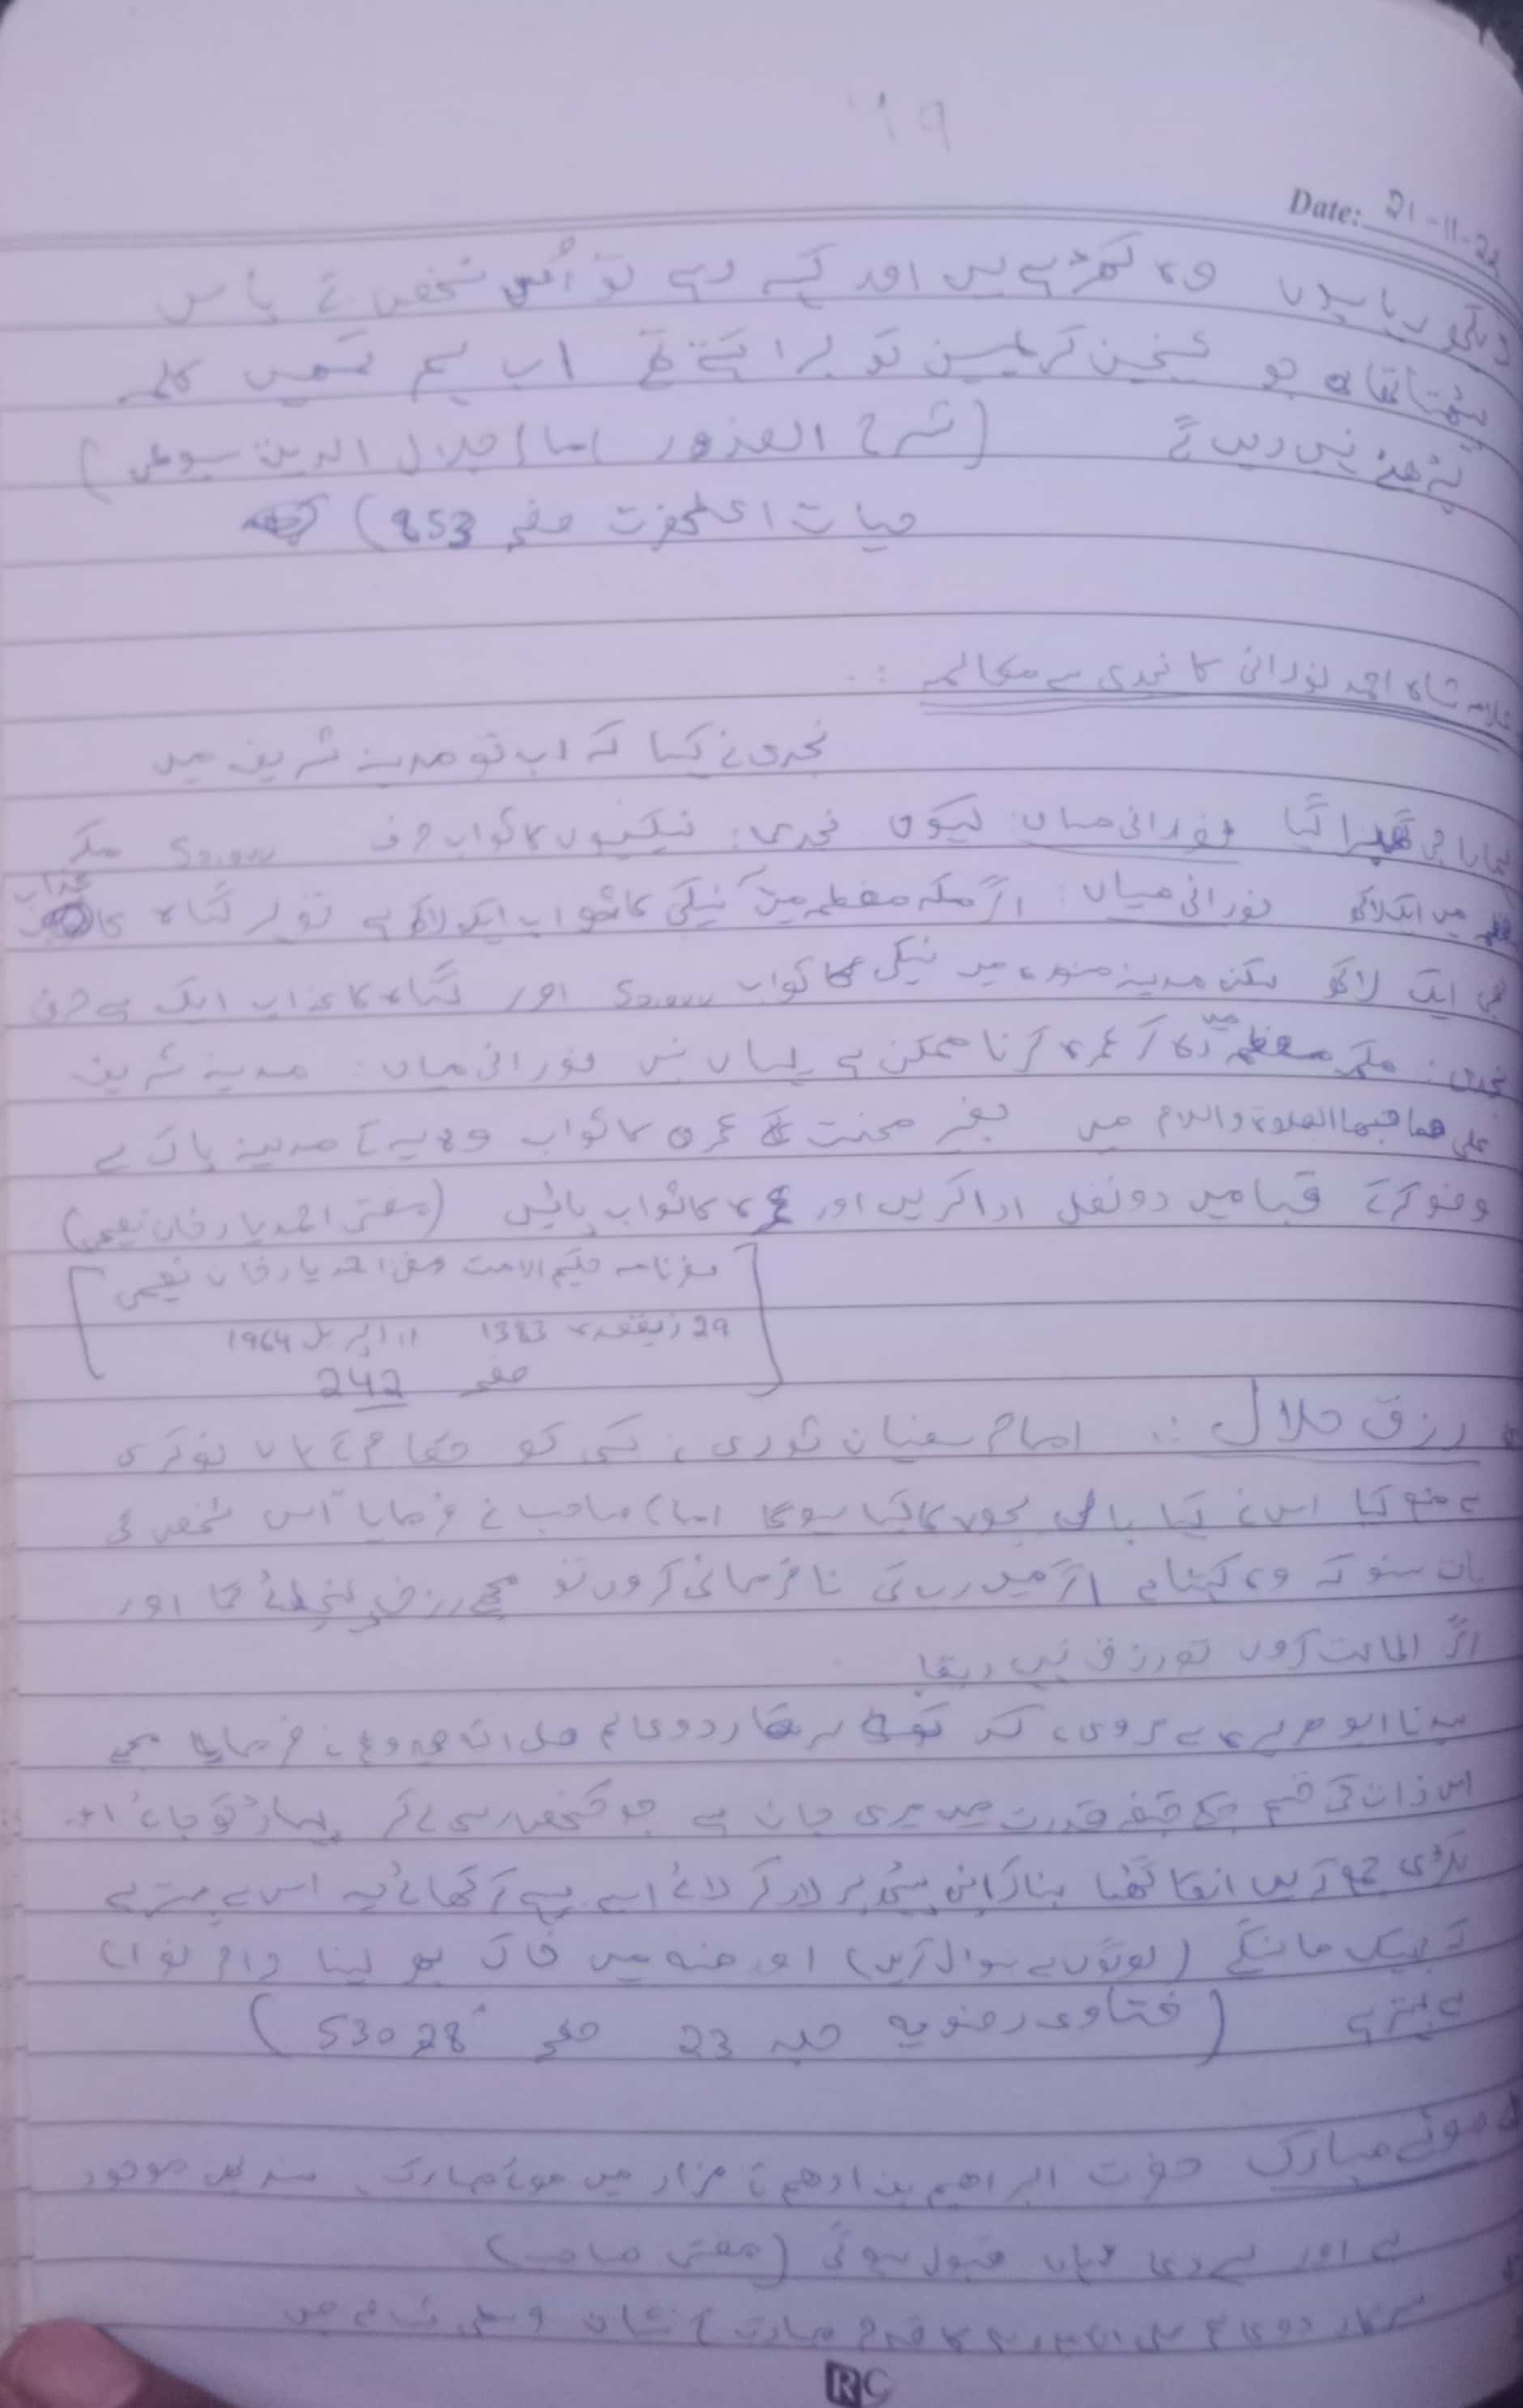 19
Date: 21-11-22
دیکھ رہا ہوں وہ کھڑے ہیں اور کہہ رہے تو اُس شخص کے پاس
بیٹھتا تھا جو شیخین کریمین کو برا کہتے تھے اب ہم تمہیں کلمہ
پڑھنے نہیں دیں گے (شرح الصدور امام جلال الدین سیوطی)
حیات اعلحضرت صفحہ 853)
علامہ شاہ احمد نورانی کا نجدی سے مکالمہ :.
نجدی نے کہا کہ اب تو مدینہ شریف میں
نورانی میاں: کیوں نجدی: نیکیوں کا ثواب صرف 50,000 مکہ
میں ایک لاکھ نورانی میاں: اگر مکہ معظمہ میں نیکی کا ثواب ایک لاکھ ہے تو ہر گناہ کا عذاب
بھی ایک لاکھ لیکن مدینہ منورہ میں نیکی کا ثواب 50,000 اور گناہ کا عذاب ایک ہے صرف
نجدی: مکہ معظمہ میں رہ کر عمرہ کرنا ممکن ہے یہاں نہیں نورانی میاں: مدینہ شریف
علی صاحبھا الصلوۃ والسلام میں بغیر محنت کے عمرہ کا ثواب وہ یہ کہ مدینہ پاک سے
وضو کرکے قبا میں دو نفل ادا کریں اور عمرہ کا ثواب پائیں (مفتی احمد یار خان نعیمی)
[سفرنامہ حکیم الامت مفتی احمد یار خان نعیمی
29 ذیقعدہ 1383 11 اپریل 1964
صفحہ 242]
رزق حلال :. امام سفیان ثوری، کسی کو حکام کے ہاں نوکری
سے منع کیا اس نے کہا بال بچوں کا کیا ہوگا امام صاحب نے فرمایا اس شخص کی
بات سنو کہ وہ کہتا ہے اگر میں رب کی نافرمانی کروں تو مجھے رزق اور
اگر اطاعت کروں تو رزق نہیں دیگا
سیدنا ابو ھریرہ سے مروی، کہ سرکار دو عالم صلی اللہ علیہ وسلم نے فرمایا مجھے
اس ذات کی قسم جسکے قبضہ قدرت میں میری جان ہے جو شخص رسی لے کر پہاڑ کو جائے اور
لکڑی جمع کریں انکا گٹھا بنا کر اپنی پیٹھ پر لاد کر لائے اسے بیچ کر کھائے یہ اس سے بہتر ہے
کہ بھیک مانگے (لوگوں سے سوال کریں) اور منہ میں خاک بھر لینا حرام نوالہ
سے بہتر ہے (فتاوی رضویہ جلد 23 صفحہ 528 530)
موئے مبارک حضرت ابراھیم بن ادھم کے مزار میں موئے مبارک، موجود
ہے اور وہاں قبول ہوگی (مفتی صاحب)
سرکار دو عالم صلی اللہ علیہ وسلم کا قدم مبارک کے نشان میں
RC